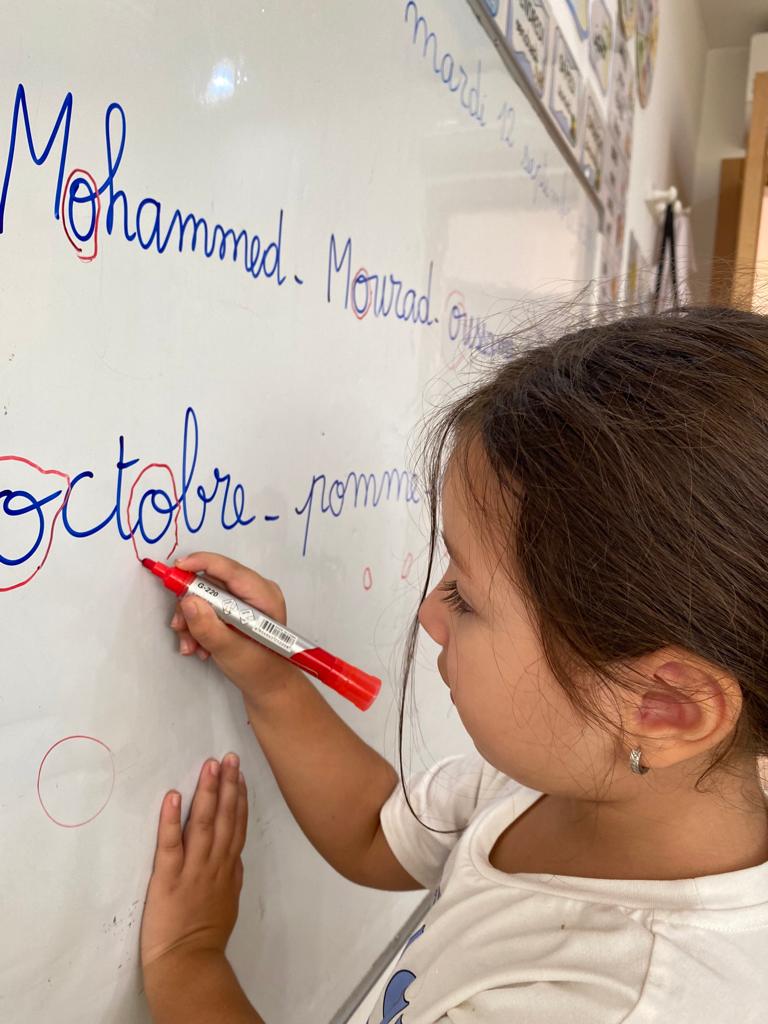 mardi 12
Mohammed - Mourad -
octobre - pomme
G-220